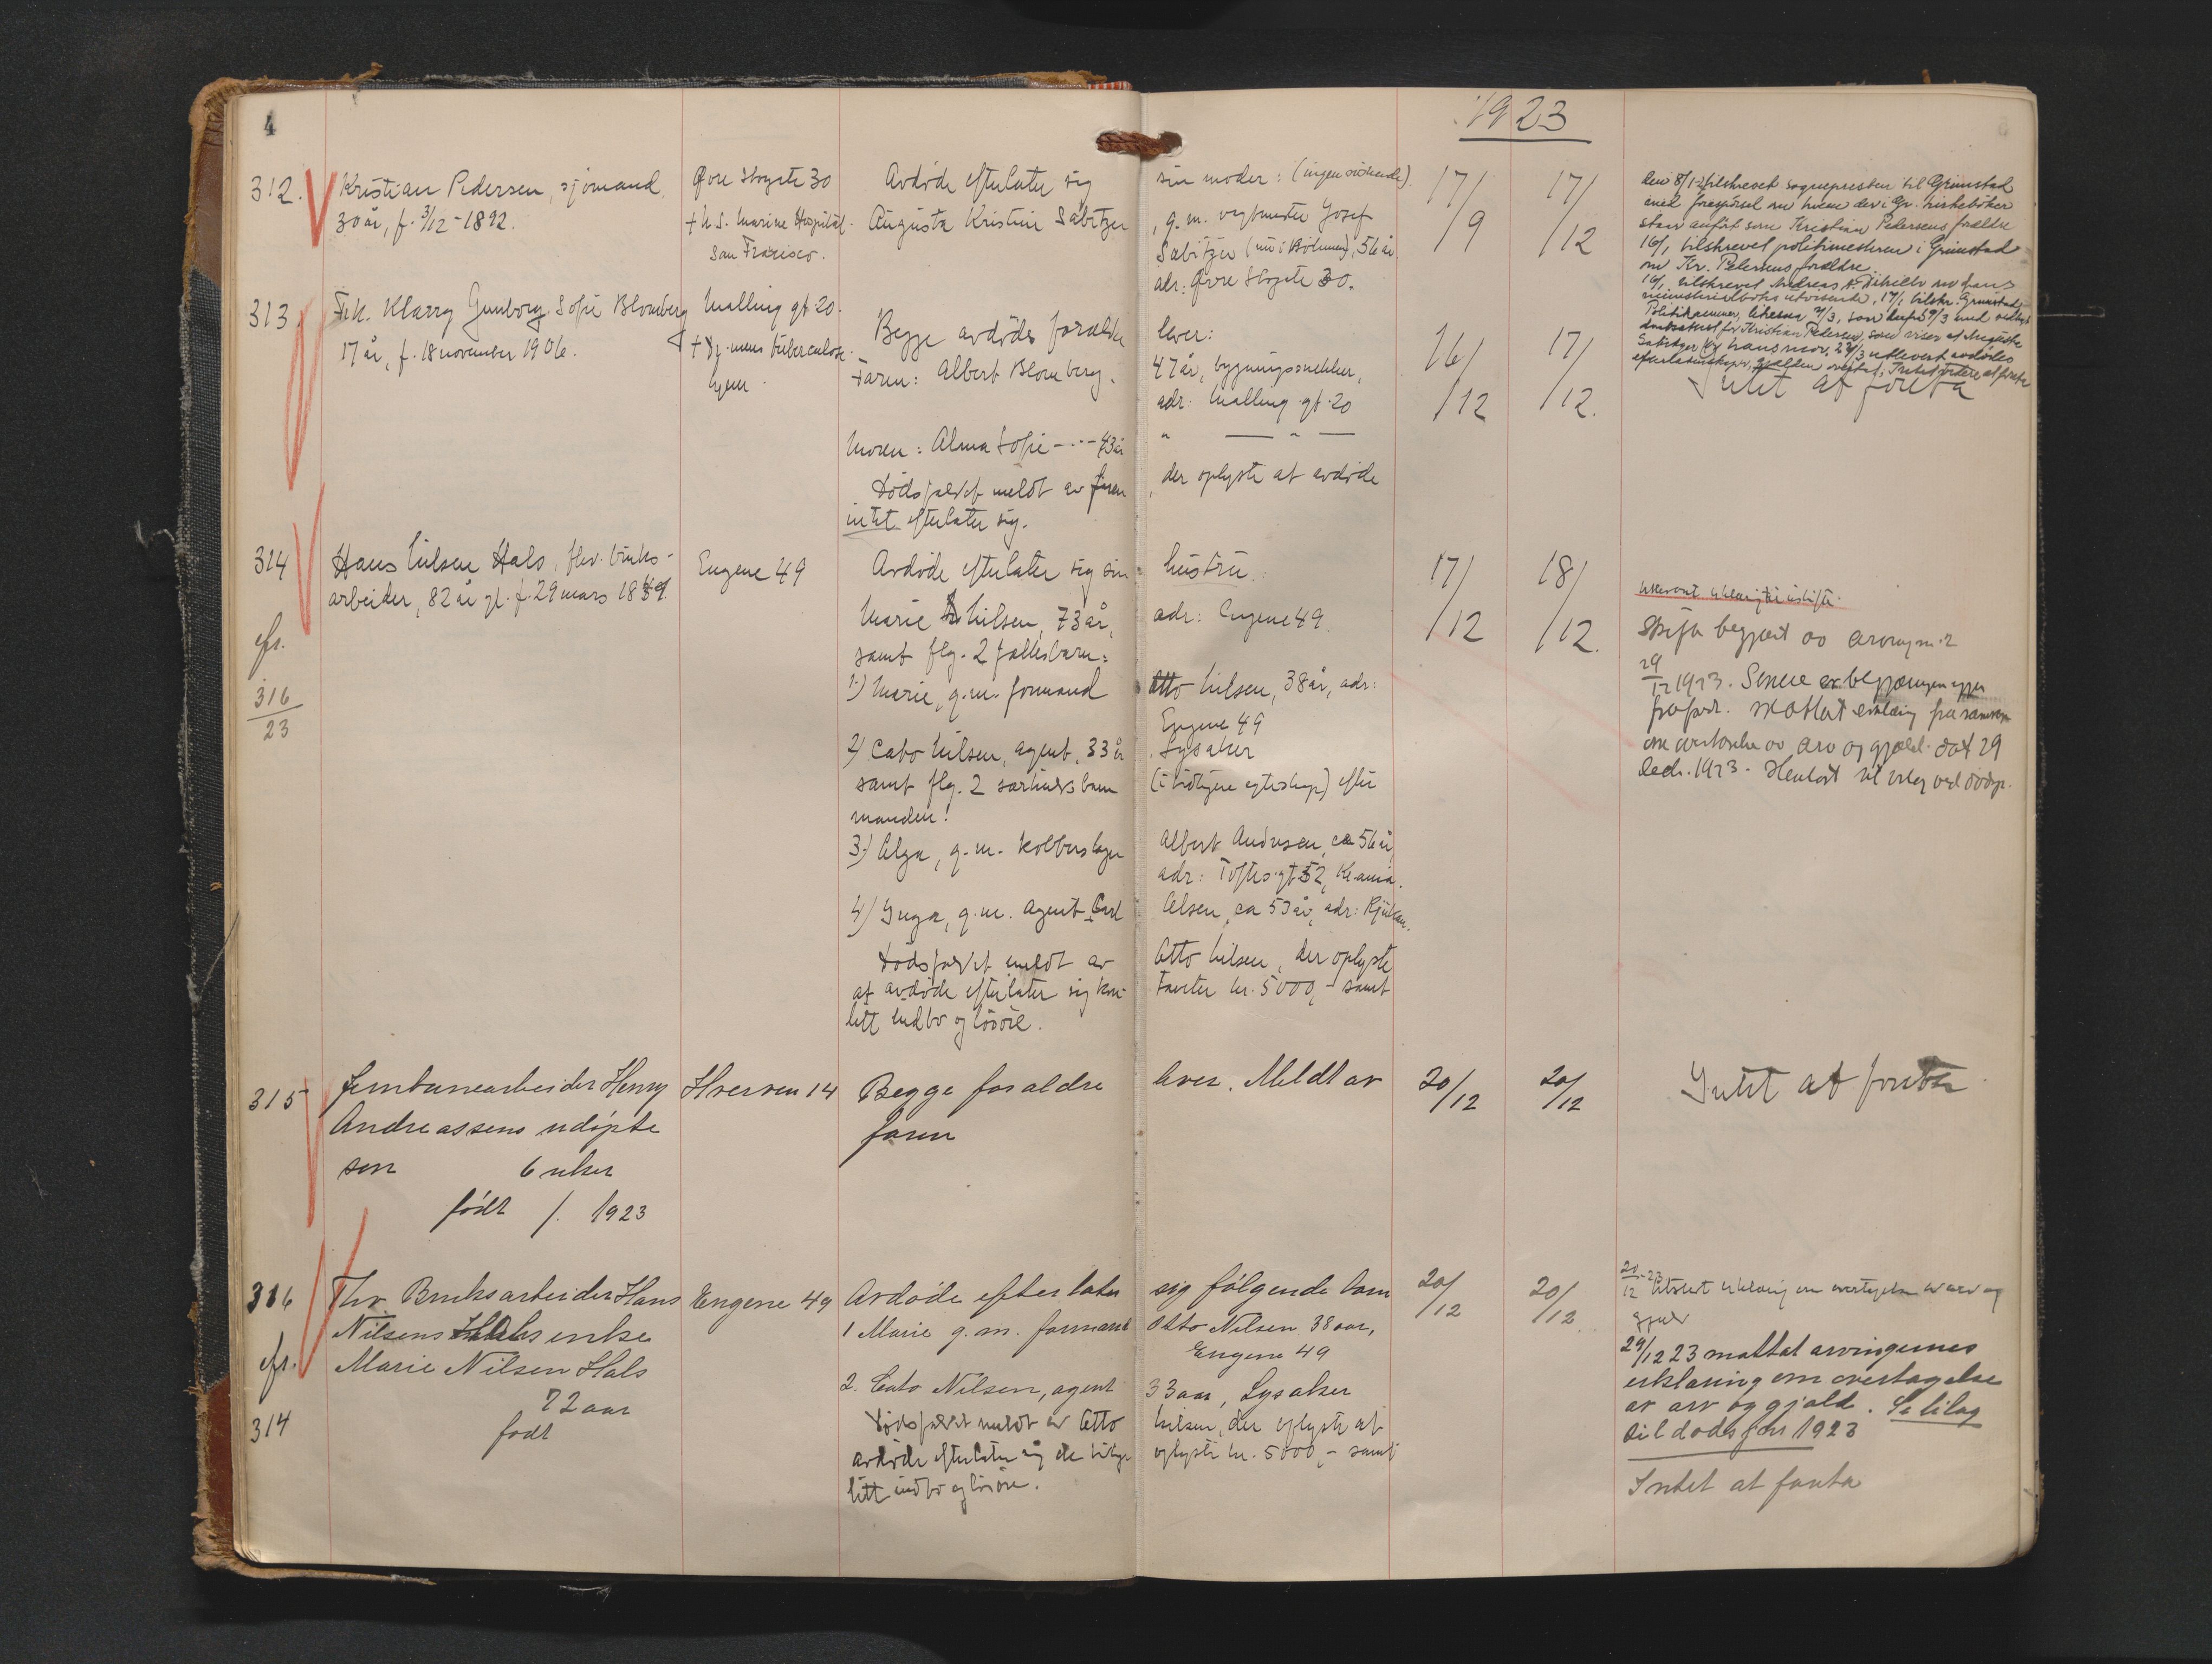 4
1923
312.
Kristian Pedersen, sjømand
30 år, f. 3/12 - 1892.
Øvre Storgate 30
+ U.S. Marine Hospital
San Francisco.
Avdøde efterlater sig
Augusta Kristine Sabitzer
sin moder: (ingen søskende).
, g.m. Josef
Sabitzer (nu i Böhmen), 56 år
adr: Øvre Storgate 30.
17/9
17/12
Den 8/1 tilskrevet sognepresten til Grimstad
med forespørsel om hvem der i Gr. kirkebøker
står anført som Kristian Pedersens forældre
16/1 tilskrevet politimesteren i Grimstad
om Kr. Petersens forældre.
16/1 tilskrevet Andreas
17/1 tilskr. Grimstad
Politikammer,
for Kristian Pedersen, som
Sabitzer hans mor. utlevert avdødes
Intet videre at foreta
313.
Frk. Klarry Gunborg Sofie Blomberg
17 år, f. 18 november 1906.
Malling gt. 20.
tuberculose.
Begge avdøds forældre
Faren: Albert Blomberg,
Moren: Alma Sofie - " - 43 år
Dødsfaldet meldt av faren
intet efterlater sig.
lever:
47 år, bygningssnekker,
adr: Malling gt. 20
" — " —
, der oplyste at avdøde
16/12
17/12.
Intet at foreta
314
cfr.
316
23
Hans Nilsen Hals, fhv. bruks-
arbeider, 82 år gl. f. 29 mars 18
Engene 49
Avdøde efterlater sig sin
Marie Nilsen, 73 år,
samt flg. 2 fællesbarn:
1) Marie, g.m. formand
2) Cato Nilsen, agent, 33 år
samt flg. 2 særkuldsbarn
manden:
3) Olga, g.m. kobberslager
4) Inga, g.m. agent Carl
Dødsfaldet meldt av
at avdøde efterlater sig kon-
litt indbo og løsøre.
hustru.
adr: Engene 49.
Otto Nilsen, 38 år, adr:
Engene 49
Lysaker
(i tidligere egteskap) efter
Albert Andersen, ca 56 år,
adr: Toftes gt 52, Kr.ania.
Olsen, ca 53 år, adr: Rjukan.
Otto Nilsen, der oplyste
tanter kr. 5000,- samt
17/12
18/12.
Skifte begjært av
29/12 1923. Senere er begjæringen
frafaldt. Mottat erklæring fra
om overtagelse av arv og gjæld dat 29
Decbr. 1923.
315
Jernbanearbeider Henry
Andreassens udøpte
søn 6 uker
født /. 1923
Hverven 14
Begge forældre
faren
lever. Meldt av
20/12
20/12
Intet at foreta
316
cfr.
314
Fhv. Bruksarbeider Hans
Nilsens Hals enke
Marie Nilsen Hals
72 aar
født
Engene 49
Avdøde efterlater
1 Marie g.m. formand
2. Cato Nilsen, agent
Dødsfaldet meldt av Otto
avdøde efterlater sig de
litt indbo og løsøre.
sig følgende barn
Otto Nilsen 38 aar,
Engene 49
33 aar, Lysaker
Nilsen, der oplyste at
oplyste kr. 5000,- samt
20/12
20/12
20/12 - 23 utstedt erklæring om overtagelse av arv og
gjæld
29/12 23 mottat arvingernes
erklæring om overtagelse
av arv og gjæld. Se bilag
til dødsfor 1923
Intet at foreta